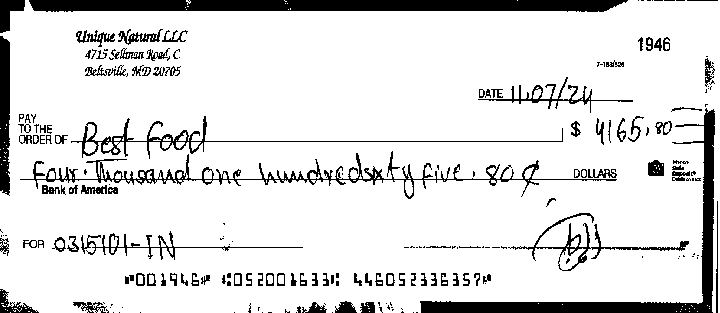 Unique Natural LLC
1946
4715 Sellman Road, C
Beltsville, MD 20705
DATE 11.07/24
PAY
TO THE
ORDER OF Best Food $ 4165.80
Four. Thousand one hundredsixty five. 80 ¢ DOLLARS
Bank of America
FOR 0315701-IN
⑈001946⑈ ⑆052001633⑆ 446052336357⑈